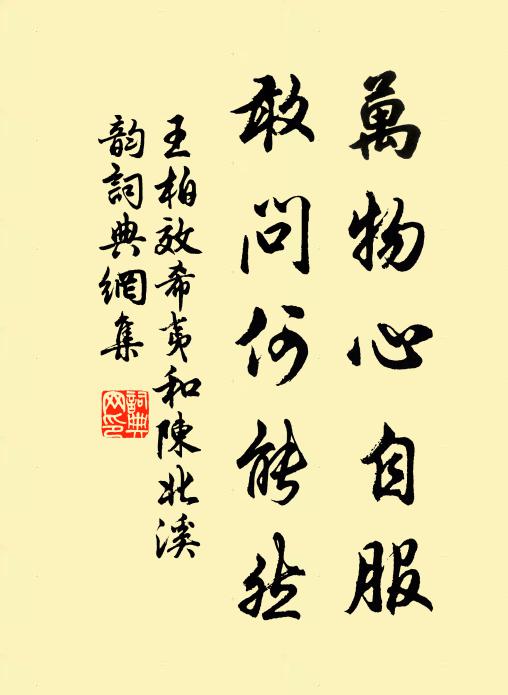 萬物心自服
敢問何能然
王柏效希夷和陳北溪
韵詞典網集
詞典
网印